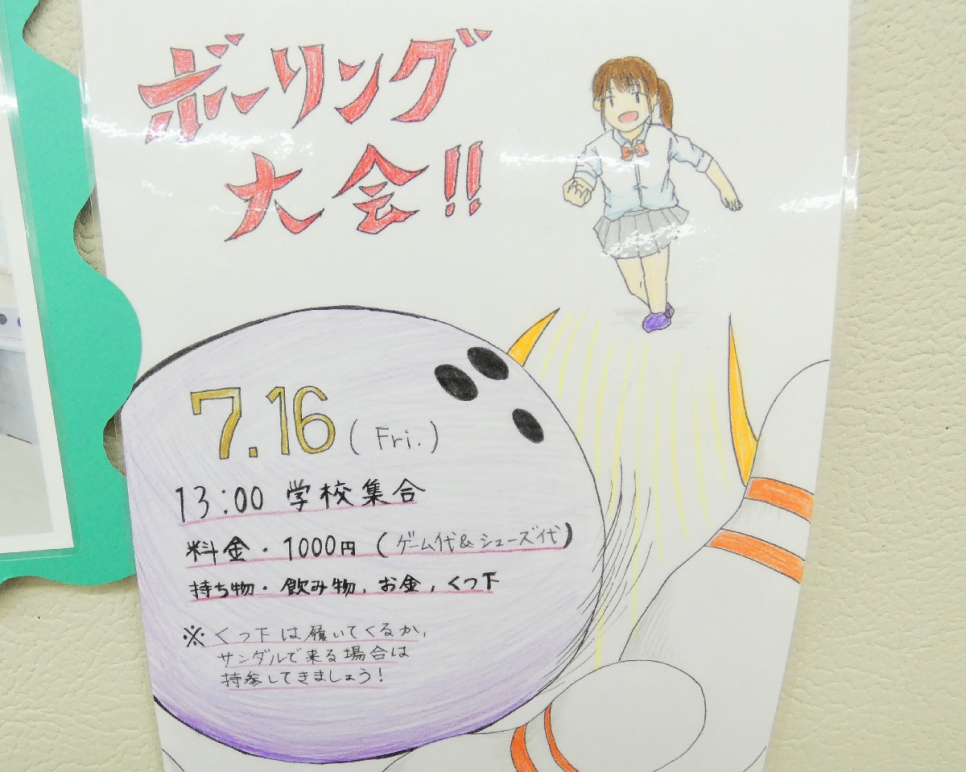 ボーリング
大会!!
7.16 (Fri.)
13:00 学校集合
料金・1000円 (ゲーム代&シューズ代)
持ち物・飲み物, お金, くつ下
※くつ下は履いてくるか,
サンダルで来る場合は
持参してきましょう!